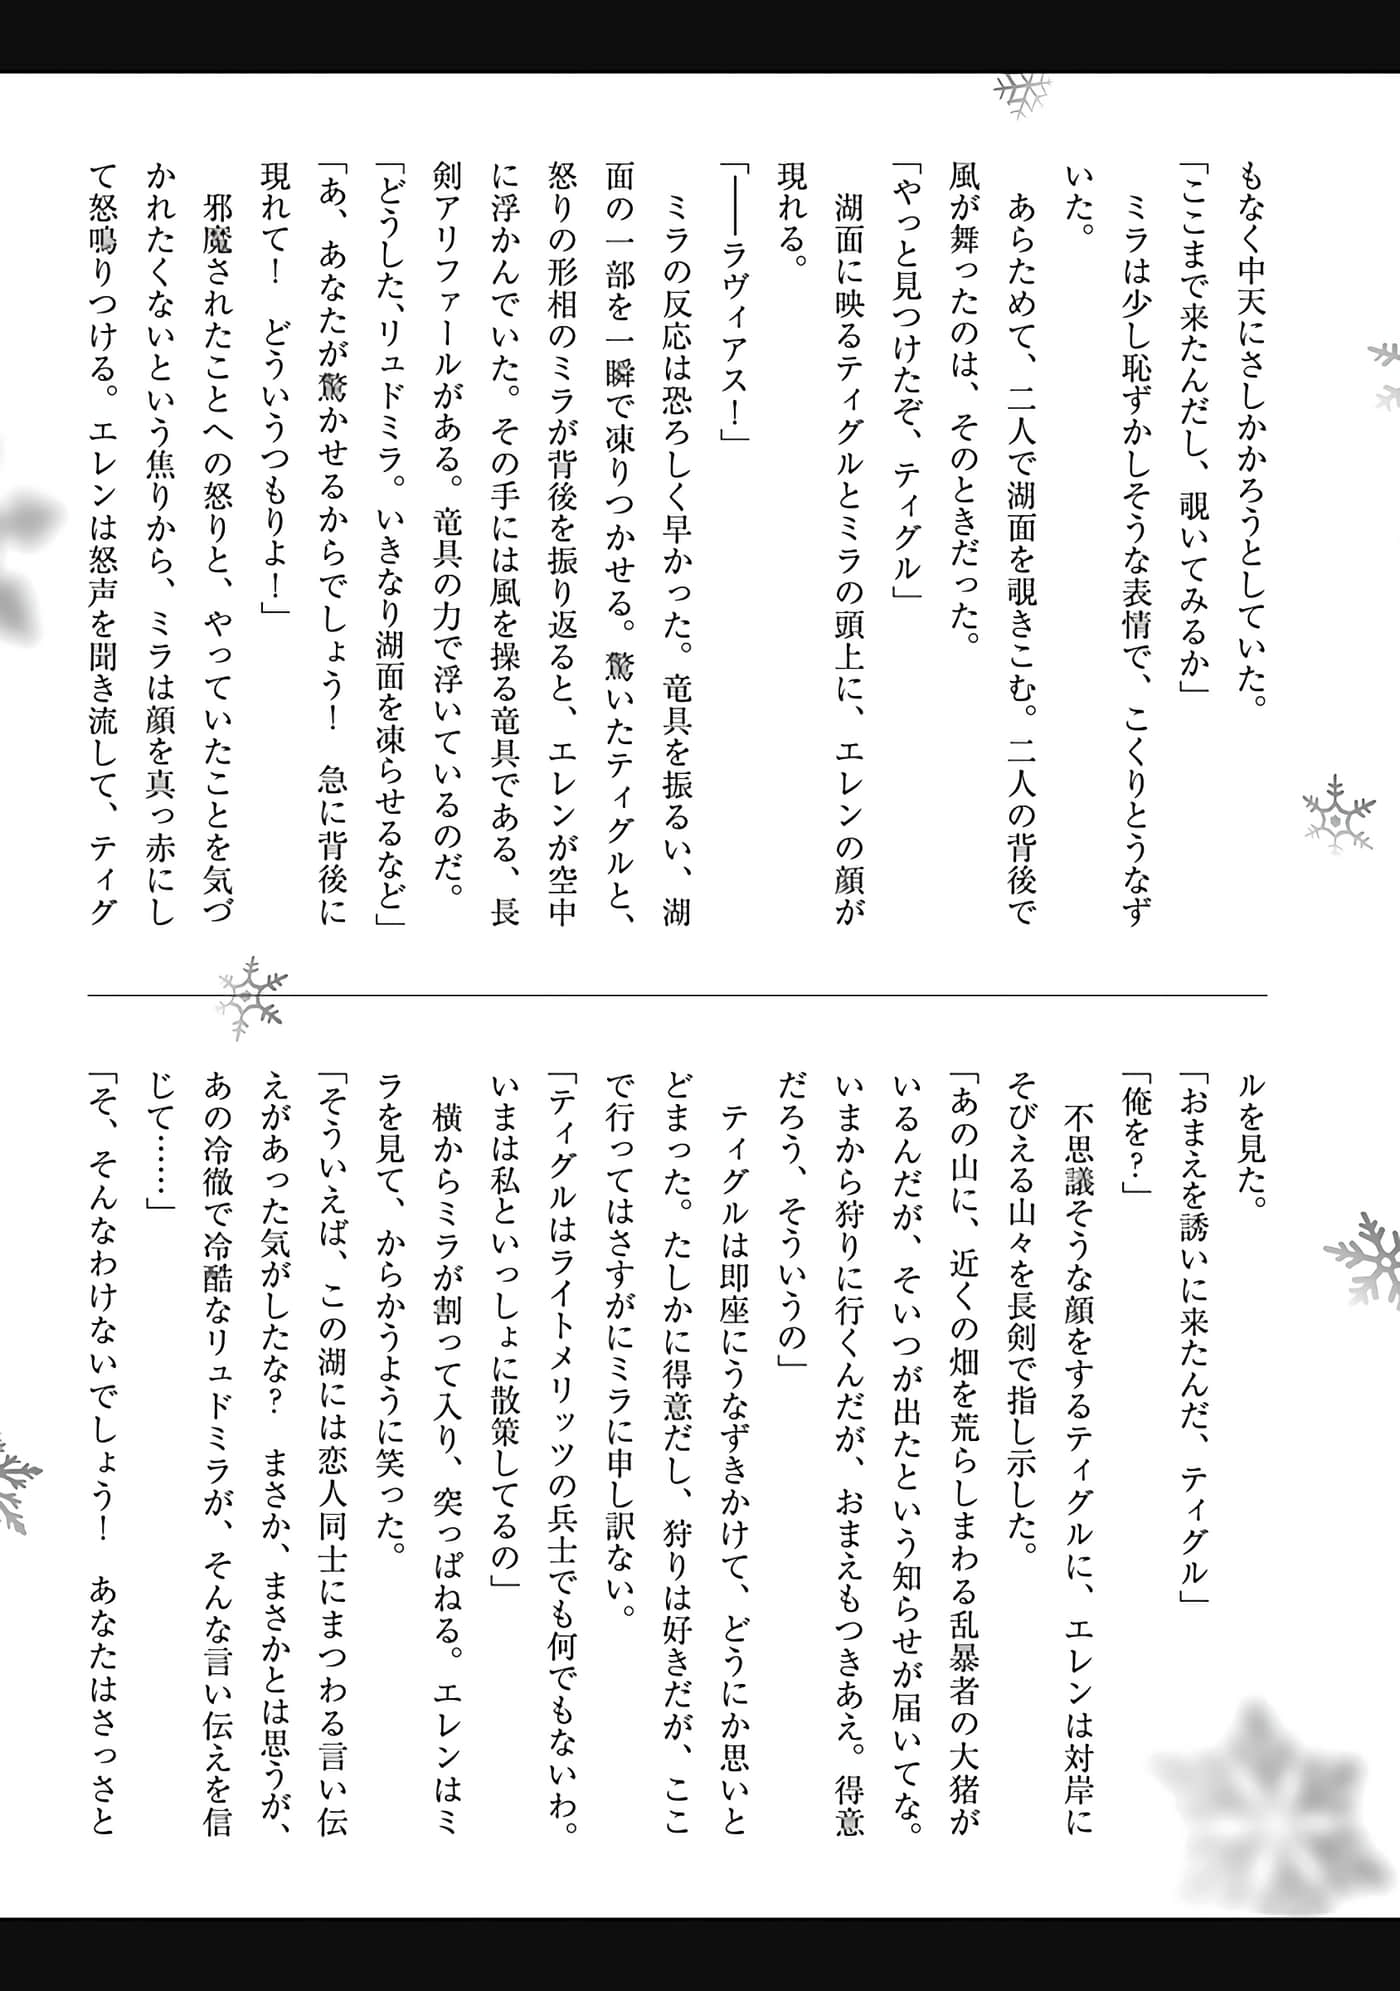 もなく中天にさしかかろうとしていた。
「ここまで来たんだし、覗いてみるか」
　ミラは少し恥ずかしそうな表情で、こくりとうなず
いた。
　あらためて、二人で湖面を覗きこむ。二人の背後で
風が舞ったのは、そのときだった。
「やっと見つけたぞ、ティグル」
　湖面に映るティグルとミラの頭上に、エレンの顔が
現れる。
「――ラヴィアス！」
　ミラの反応は恐ろしく早かった。竜具を振るい、湖
面の一部を一瞬で凍りつかせる。驚いたティグルと、
怒りの形相のミラが背後を振り返ると、エレンが空中
に浮かんでいた。その手には風を操る竜具である、長
剣アリファールがある。竜具の力で浮いているのだ。
「どうした、リュドミラ。いきなり湖面を凍らせるなど」
「あ、あなたが驚かせるからでしょう！　急に背後に
現れて！　どういうつもりよ！」
　邪魔されたことへの怒りと、やっていたことを気づ
かれたくないという焦りから、ミラは顔を真っ赤にし
て怒鳴りつける。エレンは怒声を聞き流して、ティグ
ルを見た。
「おまえを誘いに来たんだ、ティグル」
「俺を？」
　不思議そうな顔をするティグルに、エレンは対岸に
そびえる山々を長剣で指し示した。
「あの山に、近くの畑を荒らしまわる乱暴者の大猪が
いるんだが、そいつが出たという知らせが届いてな。
いまから狩りに行くんだが、おまえもつきあえ。得意
だろう、そういうの」
　ティグルは即座にうなずきかけて、どうにか思いと
どまった。たしかに得意だし、狩りは好きだが、ここ
で行ってはさすがにミラに申し訳ない。
「ティグルはライトメリッツの兵士でも何でもないわ。
いまは私といっしょに散策してるの」
　横からミラが割って入り、突っぱねる。エレンはミ
ラを見て、からかうように笑った。
「そういえば、この湖には恋人同士にまつわる言い伝
えがあった気がしたな？　まさか、まさかとは思うが、
あの冷徹で冷酷なリュドミラが、そんな言い伝えを信
じて……」
「そ、そんなわけないでしょう！　あなたはさっさと